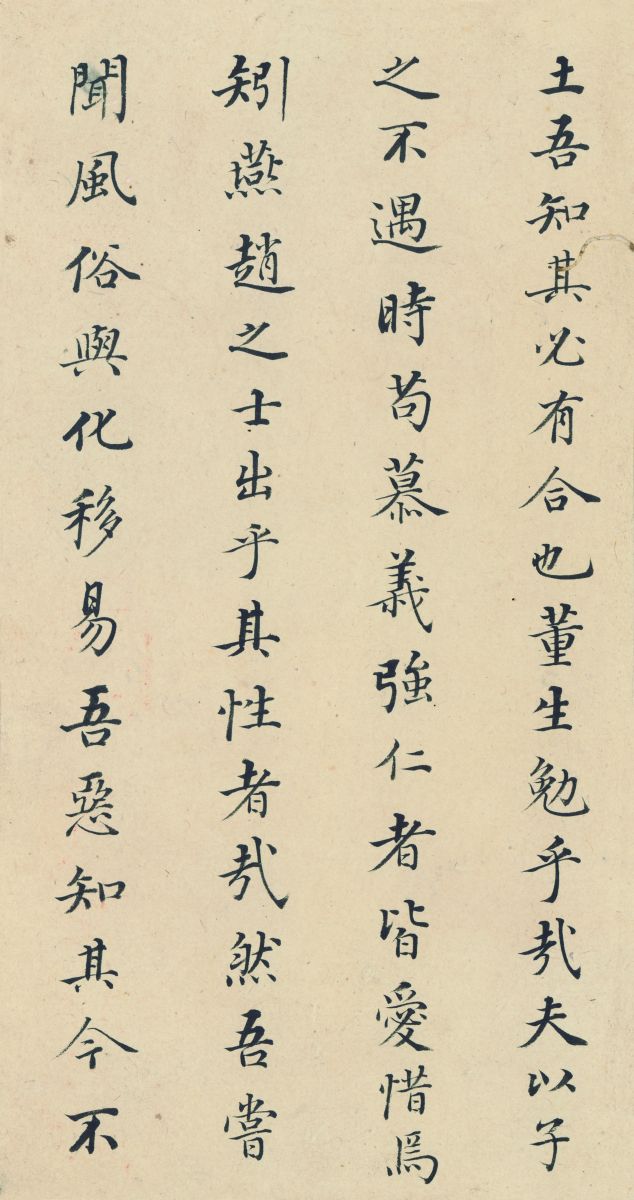 土吾知其必有合也董生勉乎㢤夫以子
之不遇時苟慕義強仁者皆愛惜焉
矧燕趙之士出乎其性者㢤然吾嘗
聞風俗與化移易吾惡知其今不